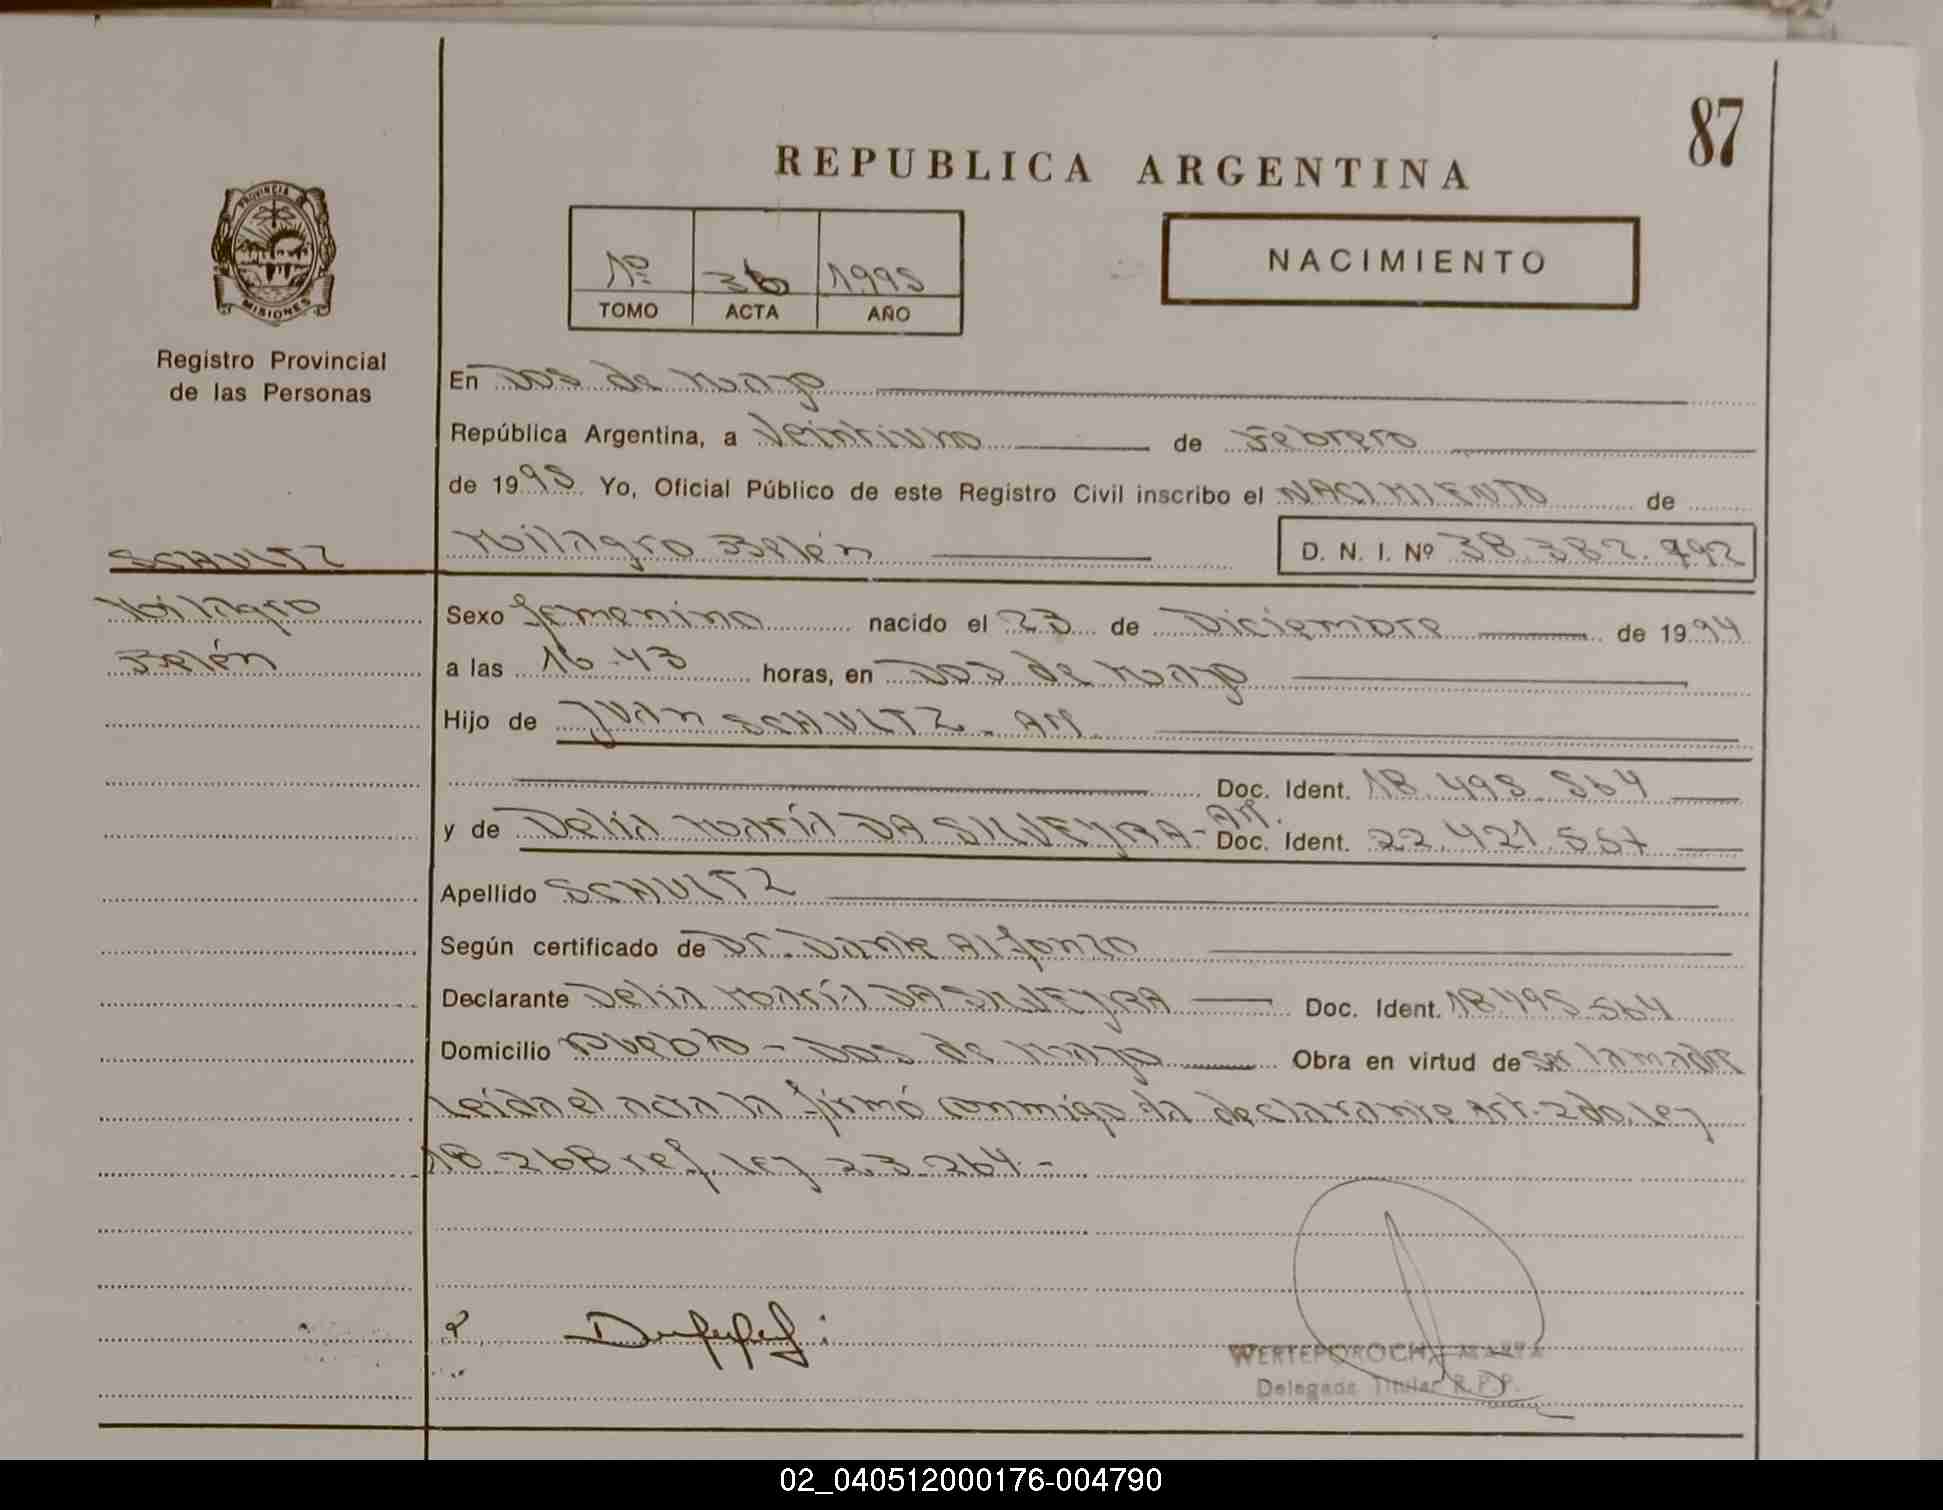 87
REPUBLICA ARGENTINA
PROVINCIA DE
MISIONES
Registro Provincial
de las Personas
1º 36 1995
TOMO ACTA AÑO
NACIMIENTO
En Dos de Mayo
República Argentina, a Veintiuno de Febrero
de 1995 Yo, Oficial Público de este Registro Civil inscribo el NACIMIENTO de
Milagro Belén D. N. I. Nº 38.382.792
SCHULTZ
Milagro
Belén
Sexo femenino nacido el 23 de Diciembre de 1994
a las 16.43 horas, en Dos de Mayo
Hijo de Juan SCHULTZ - AM.
Doc. Ident. 18.495.564
y de Delia María DA SILVEYRA - AM. Doc. Ident. 22.421.557
Apellido SCHULTZ
Según certificado de Dr. Dante Alfonzo
Declarante Delia María DA SILVEYRA Doc. Ident. 18.495.564
Domicilio Pueblo - Dos de Mayo Obra en virtud de ser la madre
Leída el acta la firmó conmigo la declarante Art. 2do. ley
18.268 ref. ley 23.264.-
WERTEPOROCH, MARTA
Delegada Titular R.P.P.
02_040512000176-004790